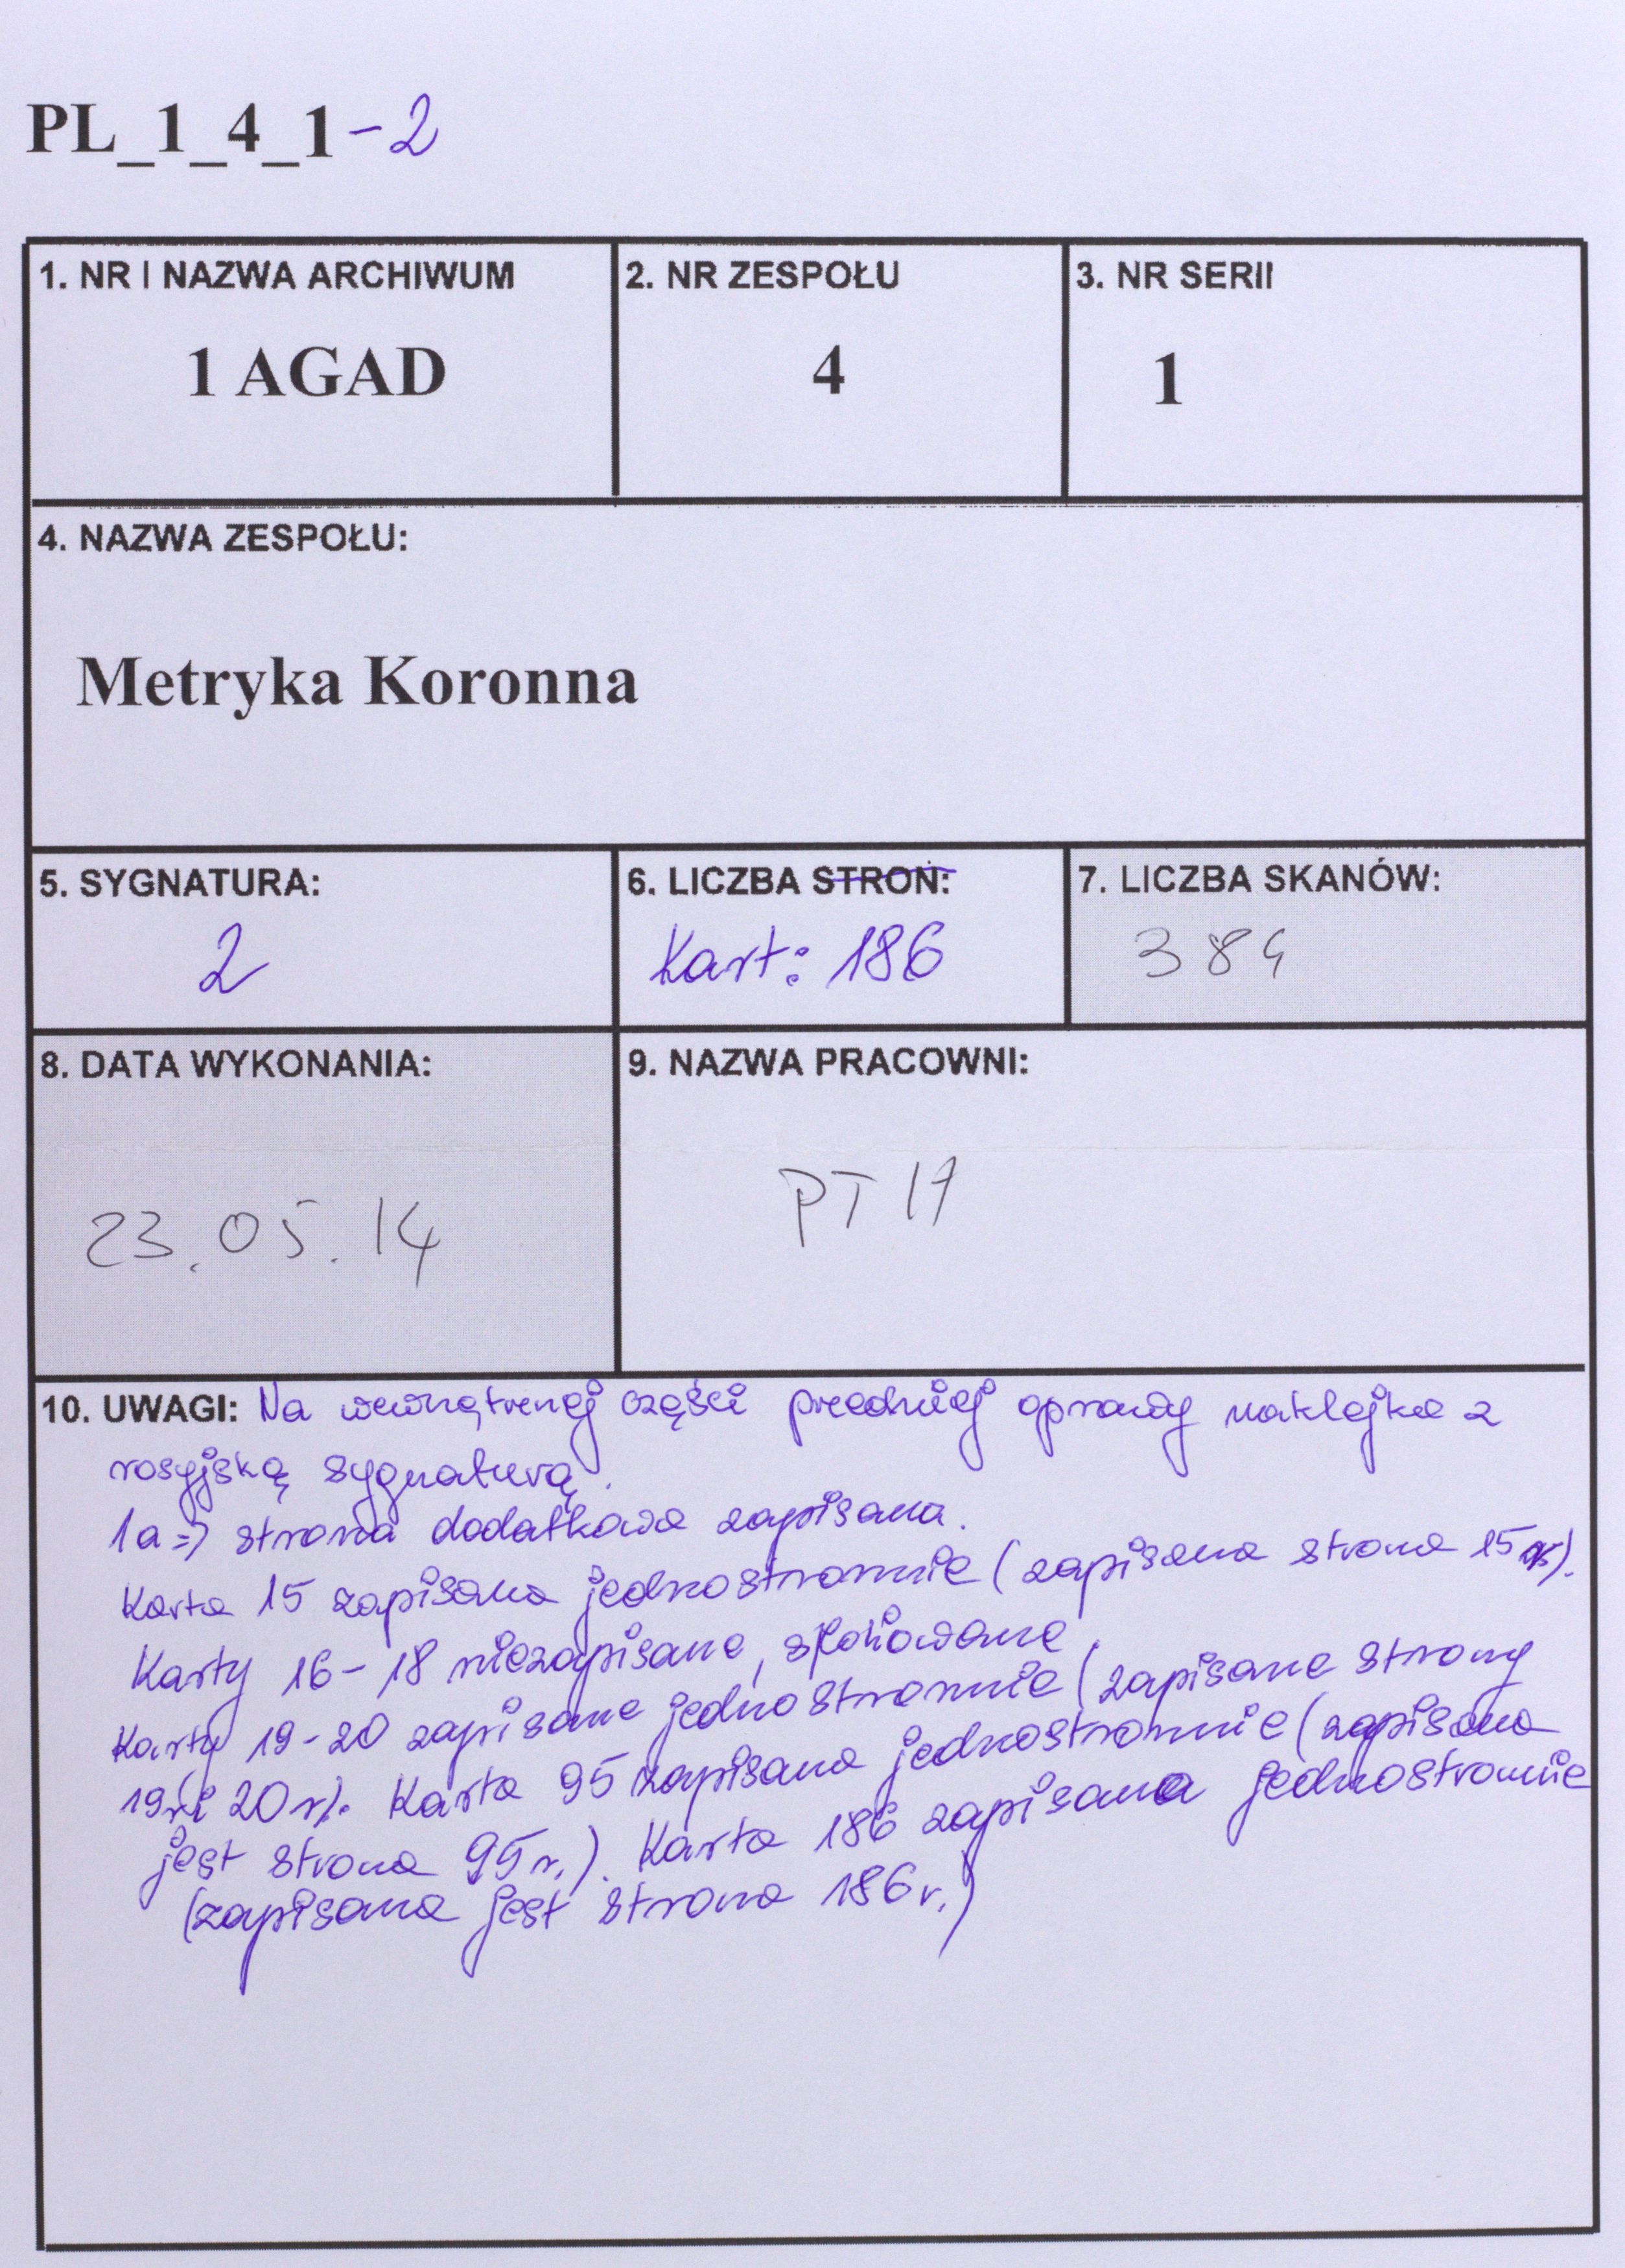 PL_1_4_1-2
1. NR I NAZWA ARCHIWUM
1 AGAD
2. NR ZESPOŁU
4
3. NR SERII
1
4. NAZWA ZESPOŁU:
Metryka Koronna
5. SYGNATURA:
2
6. LICZBA STRON:
Kart: 186
7. LICZBA SKANÓW:
384
8. DATA WYKONANIA:
23.05.14
9. NAZWA PRACOWNI:
PT 17
10. UWAGI: Na wewnętrznej części przedniej oprawy naklejka z
rosyjską sygnaturą.
1a => strona dodatkowa zapisana.
Karta 15 zapisana jednostronnie (zapisana strona 15).
Karty 16-18 niezapisane, sfoliowane,
Karty 19-20 zapisane jednostronnie (zapisane strony
19r i 20r). Karta 95 zapisana jednostronnie (zapisana
jest strona 95r.). Karta 186 zapisana jednostronnie
(zapisana jest strona 186r.)